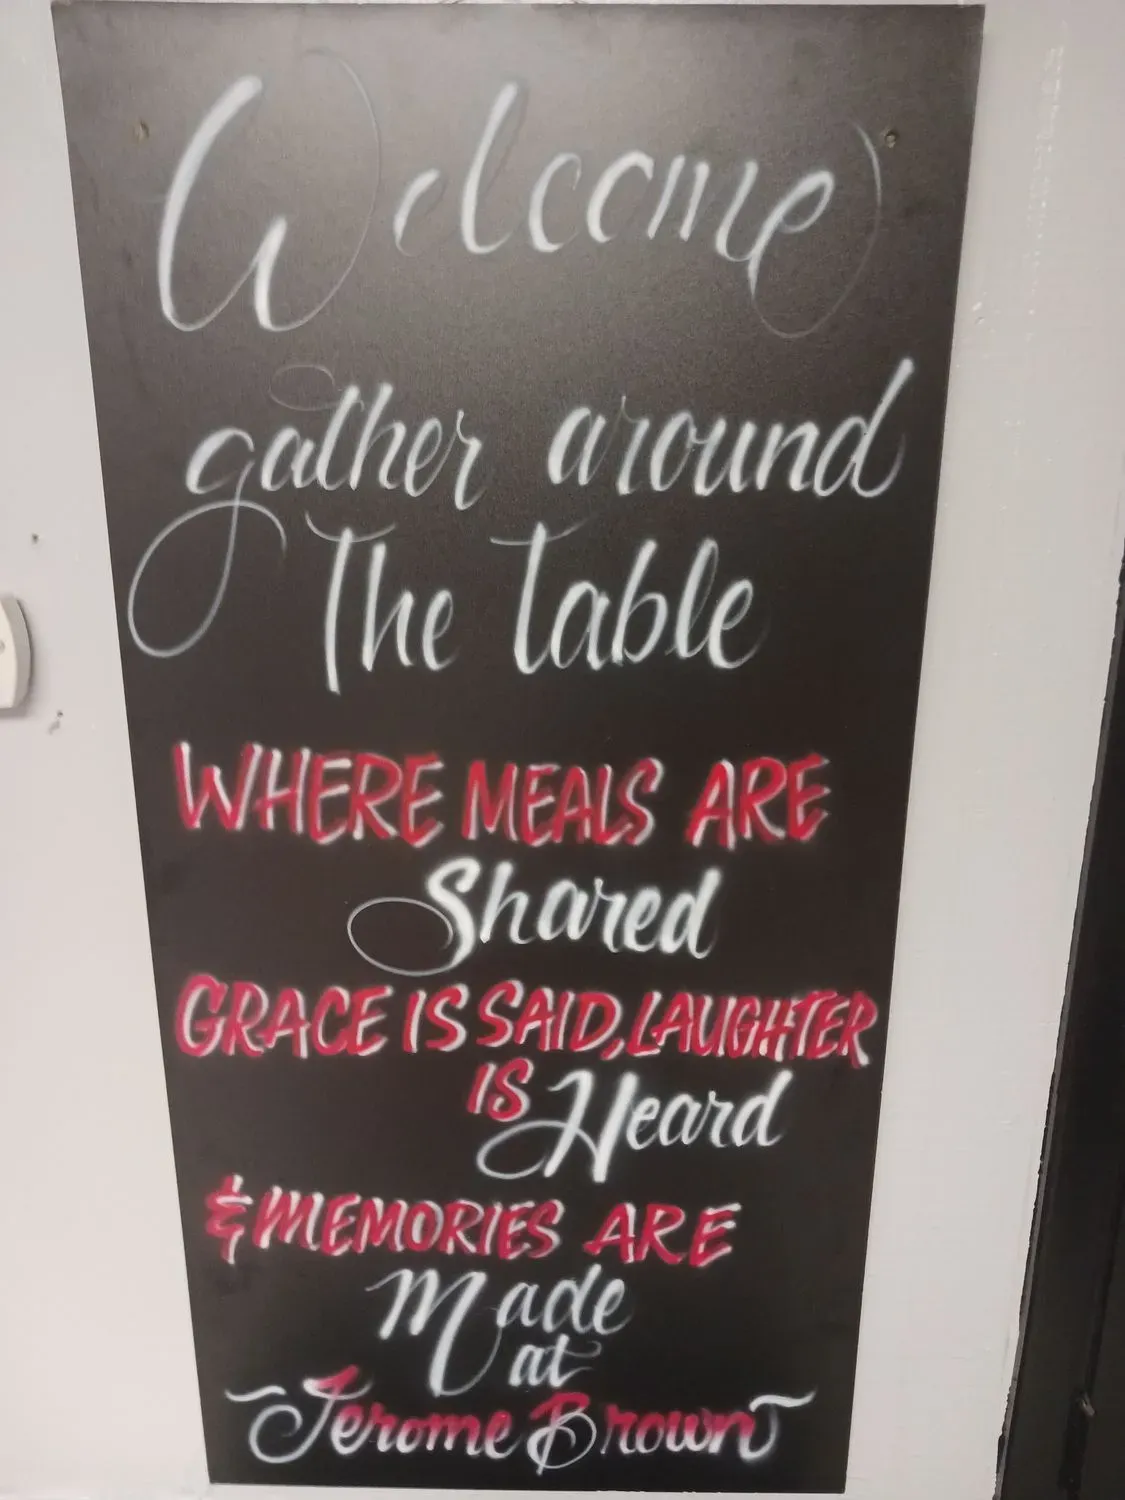 Welcome
gather around
The table
WHERE MEALS ARE
Shared
GRACE IS SAID, LAUGHTER
IS Heard
& MEMORIES ARE
Made
at
Jerome Brown